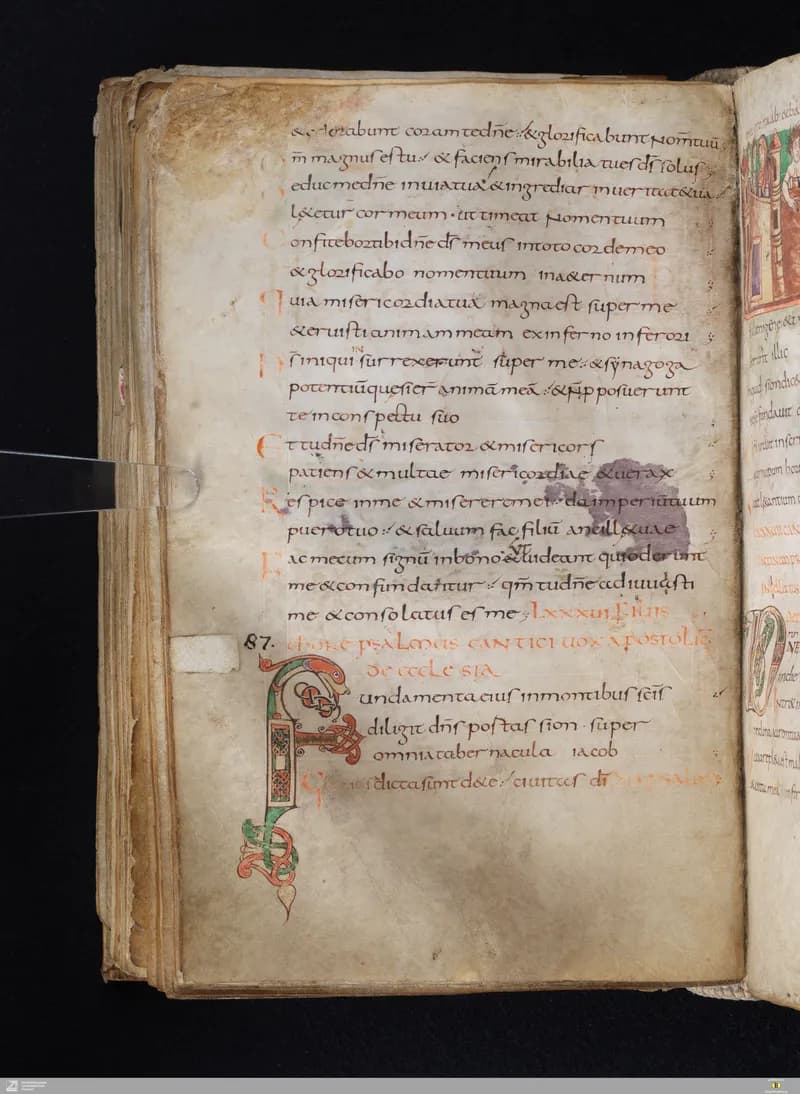 & adorabunt coram te dn̄e ·/ & glorificabunt nom̄ tuū
m̄ magnus es tu ·/ & faciens mirabilia tu es d̄s solus
educ me dn̄e in uia tua & ingrediar in ueritat& tua
l&etur cor meum · ut timeat nomen tuum
onfitebor tibi dn̄e d̄s meus in toto corde meo
& glorificabo nomen tuum in a&ernum
Quia misericordia tua magna est super me
& eruisti animam meam ex inferno inferori
D̄s iniqui surrexerunt super me ·/ & synagoga
potentiū quesier̄ animā meā ·/ & n̄ pposuerunt
te in conspectu suo
Et tu dn̄e d̄s miserator & misericors
patiens & multae misericordiae & uerax
Respice in me & miserere mei ·/ da imperiū tuum
puero tuo ·/ & saluum fac filiū ancill& uae
Fac mecum signū in bono & uideant qui oderunt
me & confundantur ·/ qm̄ tu dn̄e adiuuasti
me & consolatus es me · LXXXVI Filiis
87. chore psalmus cantici uox apostolic̄
de ecclesia
Fundamenta eius in montibus sc̄is
diligit dn̄s portas sion · super
omnia tabernacula iacob
dicta sunt de te ·/ ciuitas d̄i